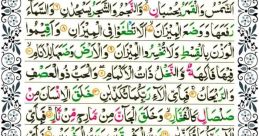 اَلشَّمْسُ وَالْقَمَرُ بِحُسْبَانٍ ۝ وَّالنَّجْمُ وَالشَّجَرُ يَسْجُدَانِ ۝ وَالسَّمَآءَ
رَفَعَهَا وَوَضَعَ الْمِيْزَانَ ۝ اَلَّا تَطْغَوْا فِي الْمِيْزَانِ ۝ وَاَقِيْمُوا
الْوَزْنَ بِالْقِسْطِ وَلَا تُخْسِرُوا الْمِيْزَانَ ۝ وَالْاَرْضَ وَضَعَهَا لِلْاَنَامِ ۝
فِيْهَا فَاكِهَةٌ وَّالنَّخْلُ ذَاتُ الْاَكْمَامِ ۝ وَالْحَبُّ ذُو الْعَصْفِ
وَالرَّيْحَانُ ۝ فَبِاَيِّ اٰلَآءِ رَبِّكُمَا تُكَذِّبٰنِ ۝ خَلَقَ الْاِنْسَانَ مِنْ
صَلْصَالٍ كَالْفَخَّارِ ۝ وَخَلَقَ الْجَآنَّ مِنْ مَّارِجٍ مِّنْ نَّارٍ ۝ فَبِاَيِّ